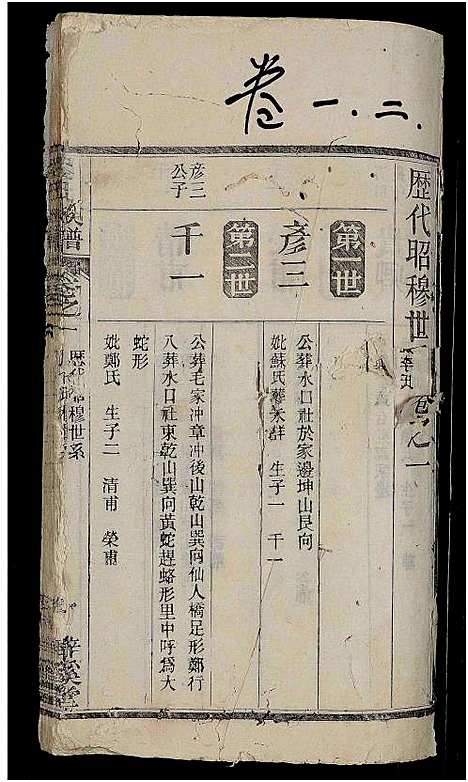 卷一.二.
歷代昭穆世
卷一
第一世
彥三
公葬水口社於家邊坤山艮向
妣蘇氏葬 生子一 千一
第二世
彥三公子
千一
公葬毛家冲章冲後山乾山巽向仙人橋足形鄭行
八葬水口社東乾山巽向黃蛇趕蛤形里中呼為大
蛇形
妣鄭氏 生子二 清甫 榮甫
氏族譜
卷之一
歷代昭穆世系